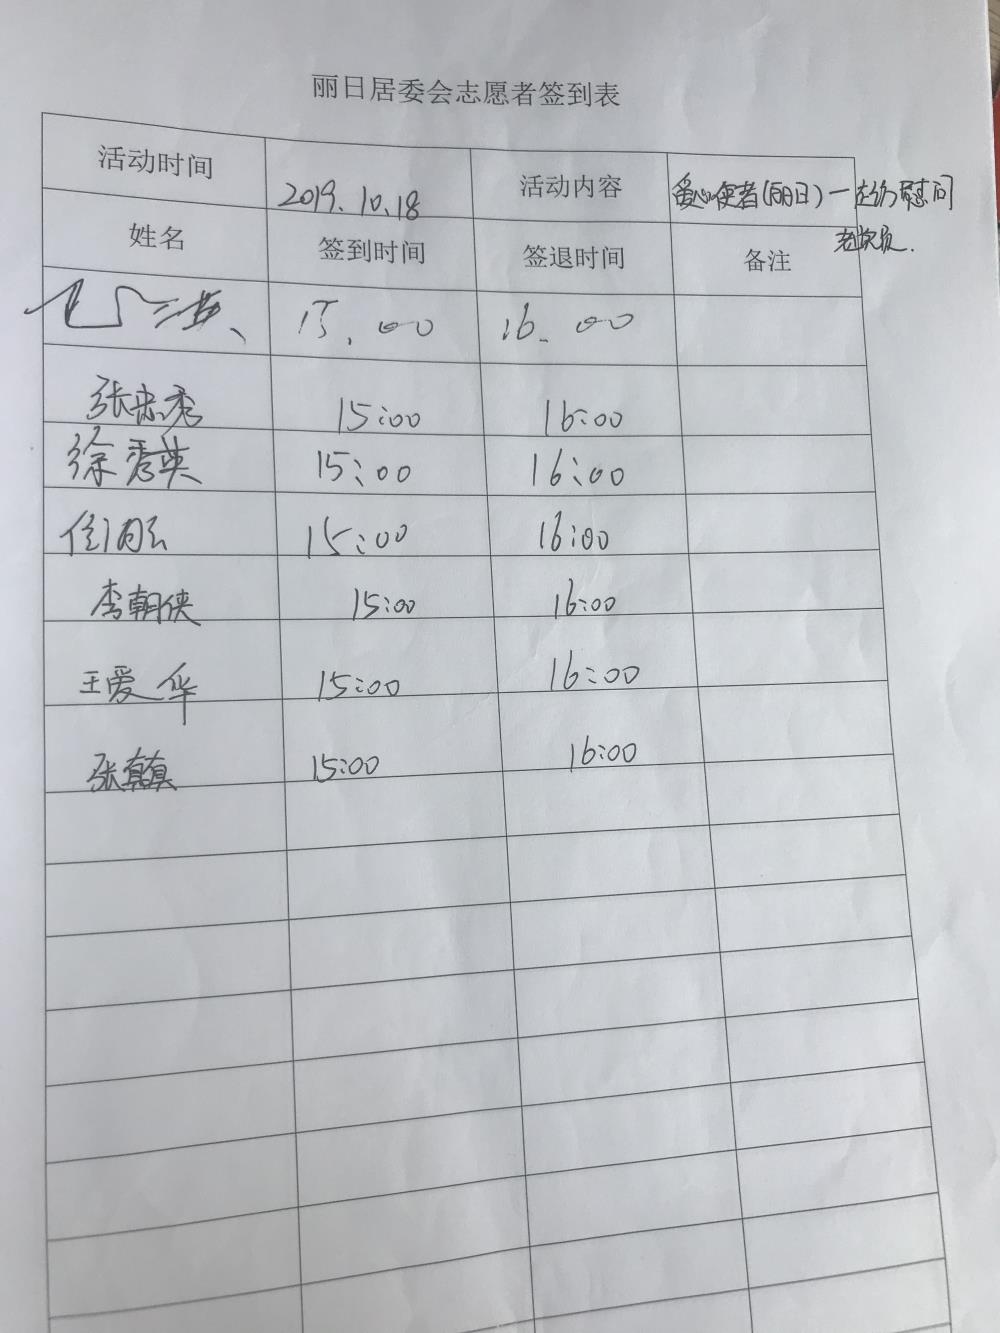 丽日居委会志愿者签到表
活动时间 2019.10.18 活动内容 爱心使者(丽日)一走访慰问
老党员.
姓名 签到时间 签退时间 备注
15.00 16.00
张忠秀 15:00 16:00
徐秀英 15:00 16:00
15:00 16:00
李朝侠 15:00 16:00
王爱华 15:00 16:00
张颠 15:00 16:00